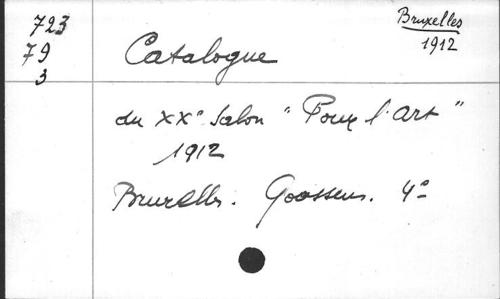 723
79
3
Bruxelles
1912
Catalogue
du XXe Salon "Pour l'art"
1912
Bruxelles. Goossens. 4°